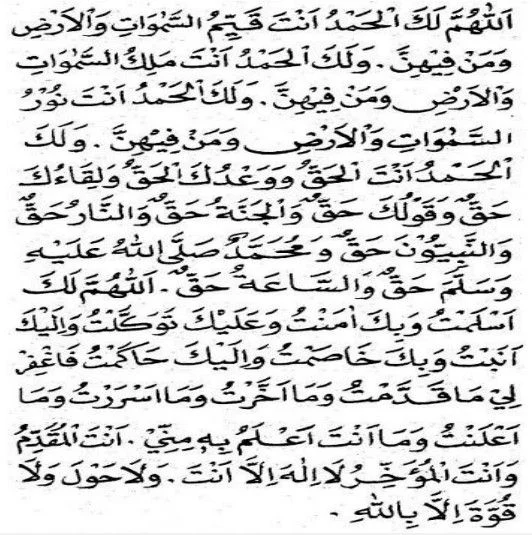 اَللّٰهُمَّ لَكَ الْحَمْدُ اَنْتَ قَيِّمُ السَّمٰوَاتِ وَالْاَرْضِ
وَمَنْ فِيْهِنَّ . وَلَكَ الْحَمْدُ اَنْتَ مَلِكُ السَّمٰوَاتِ
وَالْاَرْضِ وَمَنْ فِيْهِنَّ . وَلَكَ الْحَمْدُ اَنْتَ نُوْرُ
السَّمٰوَاتِ وَالْاَرْضِ وَمَنْ فِيْهِنَّ . وَلَكَ
الْحَمْدُ اَنْتَ الْحَقُّ وَوَعْدُكَ الْحَقُّ وَلِقَاءُكَ
حَقٌّ وَقَوْلُكَ حَقٌّ وَالْجَنَّةُ حَقٌّ وَالنَّارُ حَقٌّ
وَالنَّبِيُّوْنَ حَقٌّ وَمُحَمَّدٌ صَلَّى اللهُ عَلَيْهِ
وَسَلَّمَ حَقٌّ وَالسَّاعَةُ حَقٌّ . اَللّٰهُمَّ لَكَ
اَسْلَمْتُ وَبِكَ اٰمَنْتُ وَعَلَيْكَ تَوَكَّلْتُ وَاِلَيْكَ
اَنَبْتُ وَبِكَ خَاصَمْتُ وَاِلَيْكَ حَاكَمْتُ فَاغْفِرْ
لِيْ مَا قَدَّمْتُ وَمَا اَخَّرْتُ وَمَا اَسْرَرْتُ وَمَا
اَعْلَنْتُ وَمَا اَنْتَ اَعْلَمُ بِهٖ مِنِّيْ . اَنْتَ الْمُقَدِّمُ
وَاَنْتَ الْمُؤَخِّرُ لَا اِلٰهَ اِلَّا اَنْتَ . وَلَا حَوْلَ وَلَا
قُوَّةَ اِلَّا بِاللهِ .